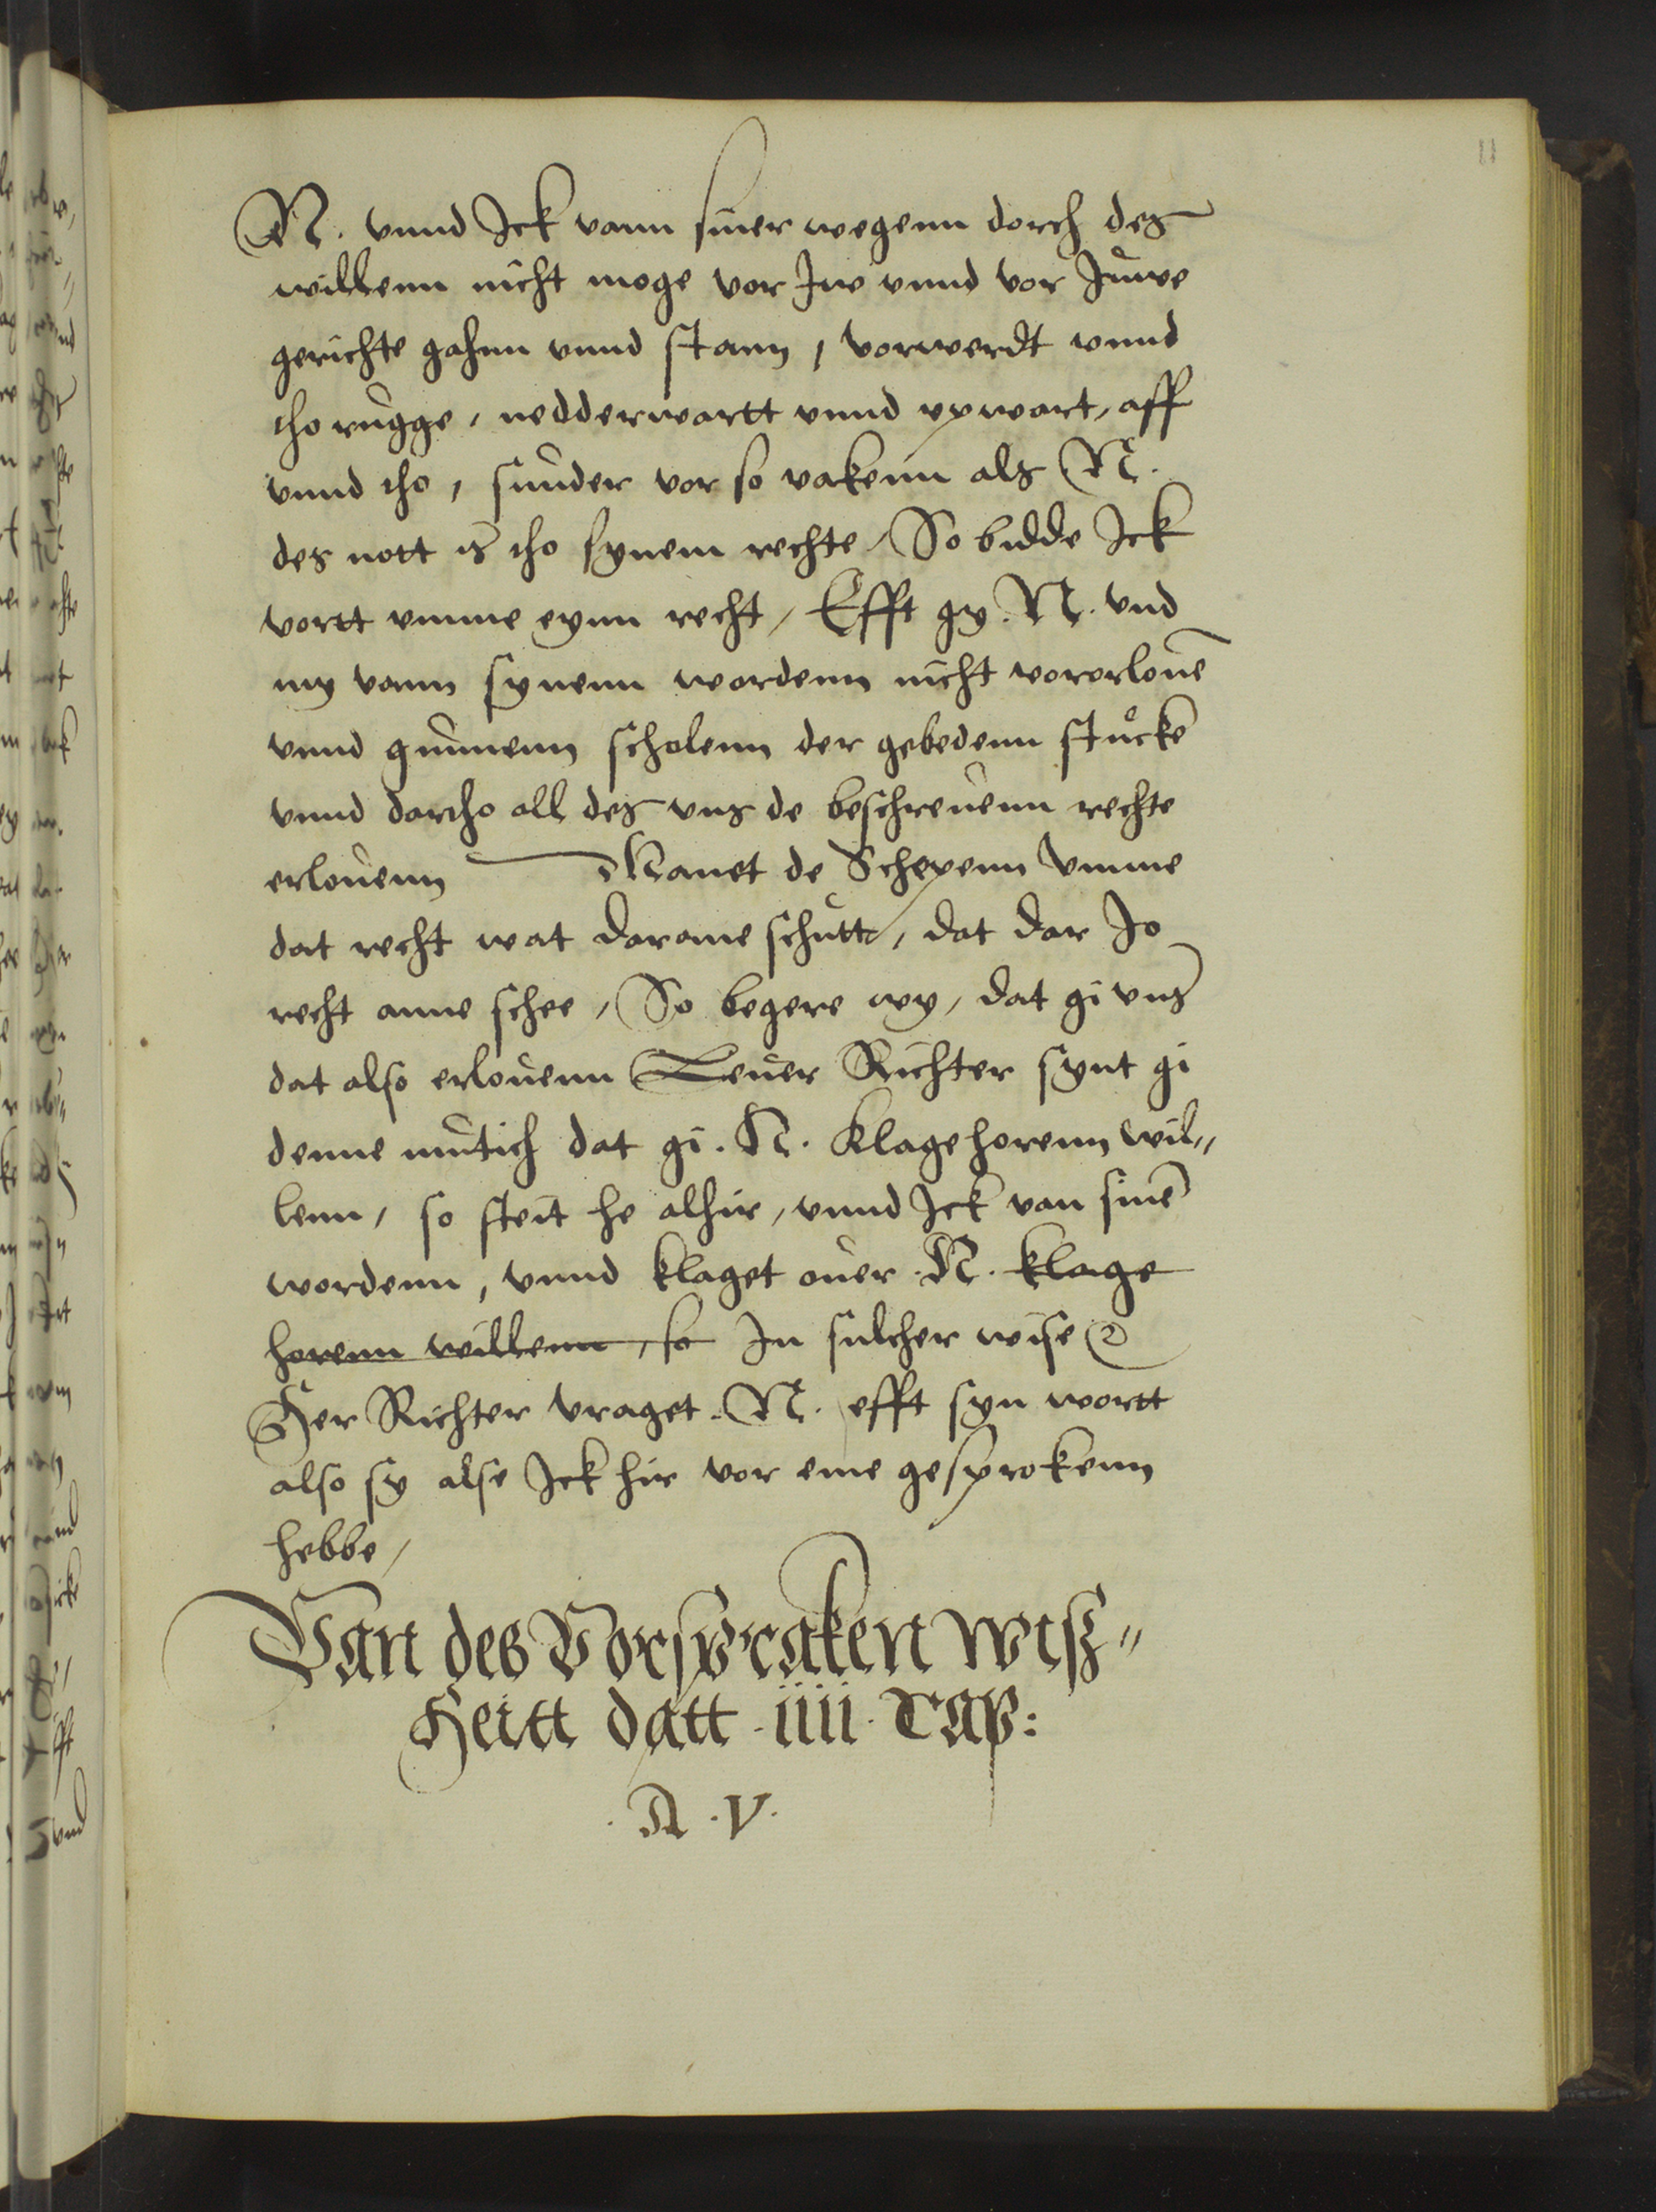 11
N. vnnd Ick vann siner wegenn dorch des
willenn nicht moge vor Juw vnnd vor Juwe
gerichte gahnn vnnd stann, vorwerdt vnnd
tho rugge, nedderwartt vnnd vpwart, aff
vnnd tho, sunder vor so vakenn als N.
des nott is tho synem rechte, So bidde Ick
vortt vmme eynn recht, Efft gy. N. vnd
my vann synenn wordenn nicht vororlouē
vnnd gunnenn scholenn der gebedenn stucke
vnnd dartho all des vns de beschreuenn rechte
erlouenn Manet de Schepenn vmme
dat recht wat darane schutt, dat dar Jo
recht anne schee, So begere wy, dat gi vns
dat also erlouenn Leuer Richter synt gi
denne mutich dat gi. N. Klage horenn wil„
lenn, so steit he alhir, vnnd Ick van sinē
wordenn, vnnd klaget ouer. N. klage
horenn willenn, so In sulcher wise
Her Richter vraget. N. efft syn wortt
also sy alse Ick hir vor eme gesprokenn
hebbe,
Van des Vorspraken wisz„
Heitt datt .iiii. Cap:
. A . V.